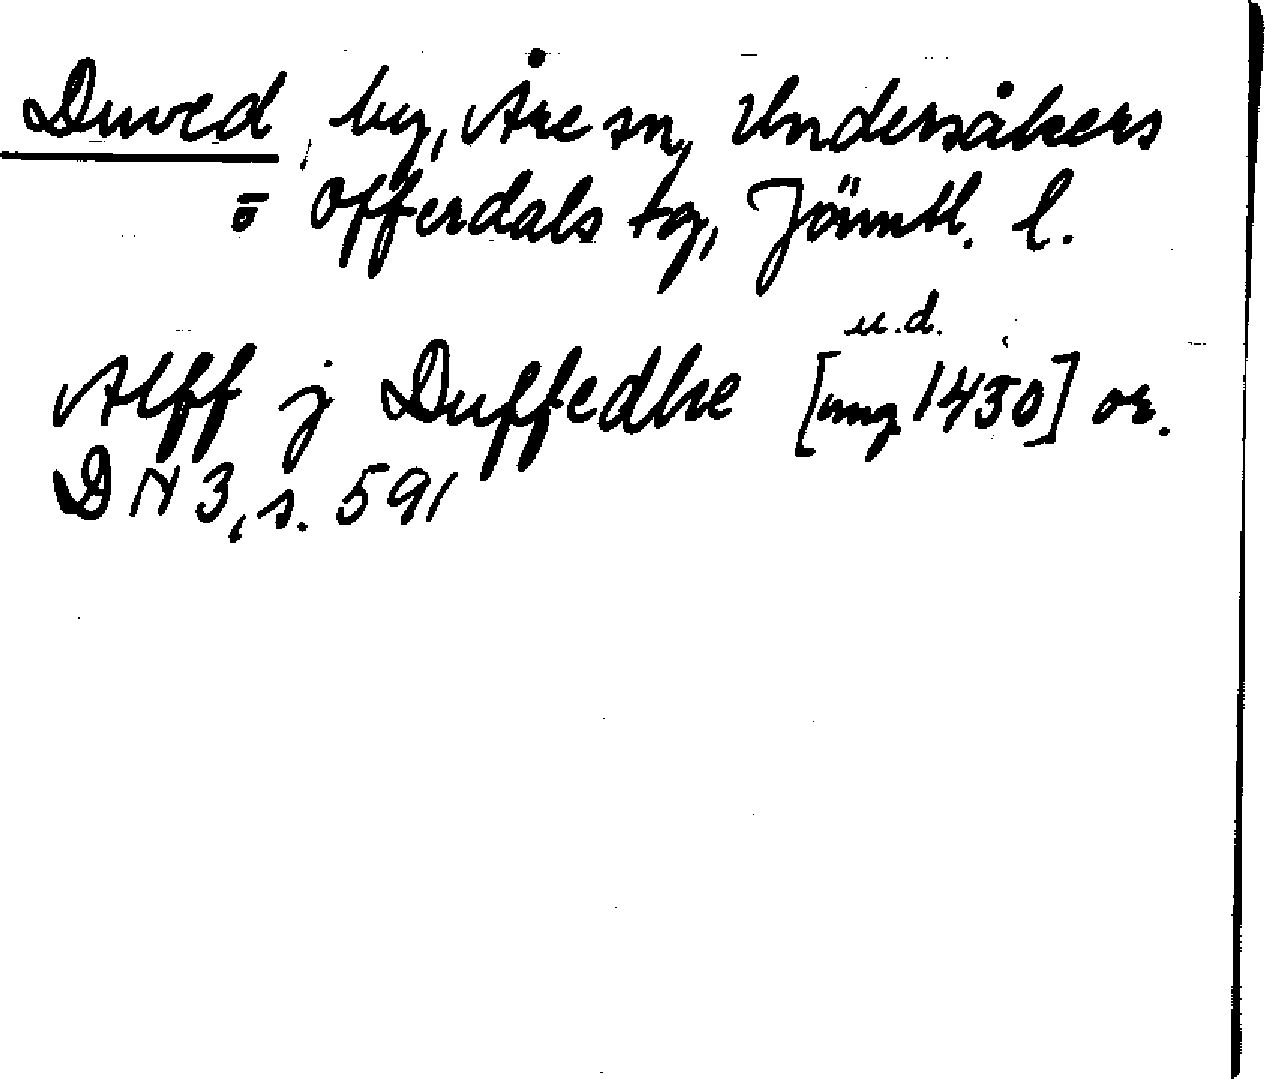 Duved, by, Åre sn, Undersåkers
o̅ Offerdals tg, Jämtl. l.
u.d.
Alff j Duffedhe [omg 1430] or.
DN 3, s. 591